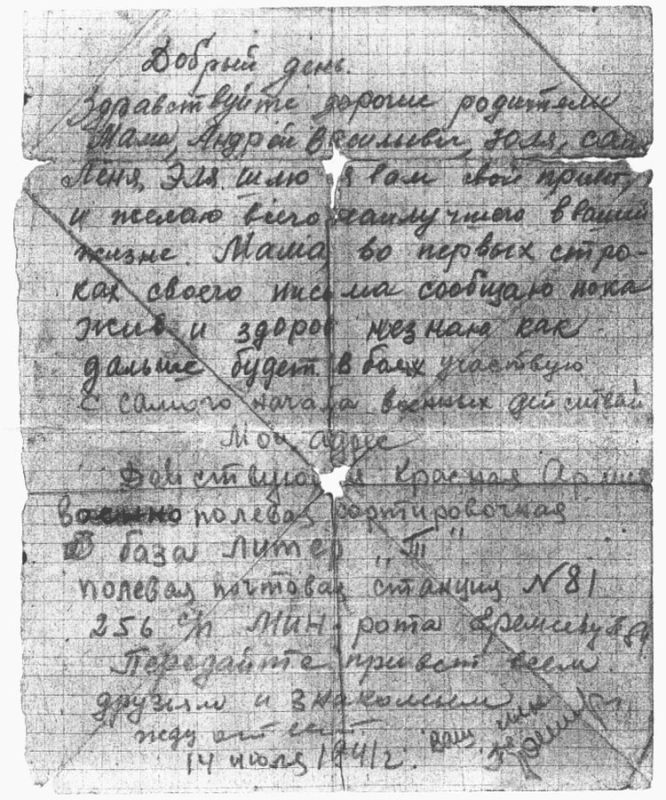 Добрый день.
Здравствуйте дорогие родители
Мама, Андрей Васильевич, Юля, Саш
Лёня, Эля. шлю я вам свой привет,
и желаю всего наилучшего в вашей
жизне. Мама, во первых стро-
ках своего письма сообщаю пока
жив и здоров незнаю как
дальше будет. в боях участвую
с самого начала военных действий
Мой адрес
Действующая Красная Армия
полевая сортировочная
база Литер „П"
полевая почтовая станция №81
256 с/п МИН. рота
Передайте привет всем
друзьям и знакомым
жду ответ ваш сын
14 июля 1941г.